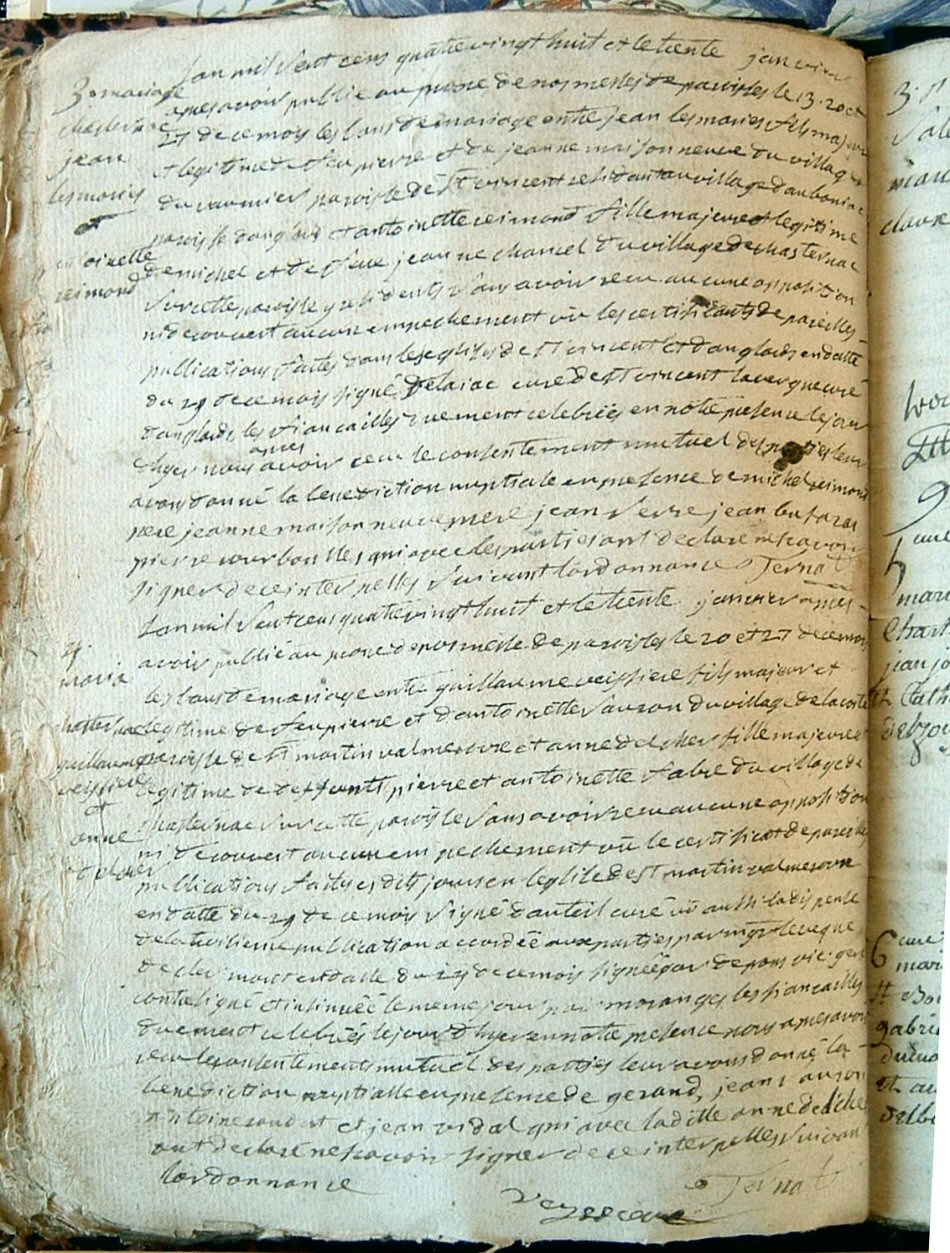 3e mariage
chasternac
jean
lesmaries
et
antoinette
reimond
Lan mil sept cens quatre vingt huit et le trente janvier
apres avoir publie au prone de nos messes de paroisses le 13. 20 et
27 de ce mois les bans de mariage entre jean lesmaries fils majeur
et legitime de feu pierre et de jeanne maison neuve du village
du paroisse de st vincent residant au village d'auboniac
paroisse danglards et antoinette reimond fille majeure et legitime
de michel et de feue jeanne chancel du village de chasternac
sur cette paroisse y residents sans avoir recu aucune opposition
ni decouvert aucun empechement vu les certificats de pareilles
publications faites dans les eglises de st vincent et danglards en datte
du 29 de ce mois signé Delaiac curé de st vincent lavergne curé
danglards, les fiancailles duement celebrées en notre presence le jour
dhyer nous apres avoir recu le consentement mutuel des parties leur
avons donné la benediction nuptiale en presence de michel reimond
pere jeanne maison neuve mere jean serre jean
pierre courboulles qui avec les parties ont declaré ne scavoir
signer de ce interpellés suivant lordonnance Ternat
4e
maria
chasternac
guillaume
veissiere
et
anne
delcher
Lan mil sept cens quatre vingt huit et le trente janvier apres
avoir publié au prone de nos messe de paroisses le 20 et 27 de ce mois
les bans de mariage entre guillaume veissiere fils majeur et
legitime de feu pierre et dantoinette sauron du village de lacoste
paroisse de st martin valmeroux et anne delcher fille majeure et
legitime de deffunts pierre et antoinette fabre du village de
chasternac sur cette paroisse sans avoir recu aucune opposition
ni decouvert aucun empechement vu le certificat de pareilles
publications faites es dits jours en leglise de st martin valmeroux
en datte du 29 de ce mois signé dauteil curé vu aussi la dispense
de la troisieme publication accordée aux parties par mgr leveque
de clermont en datte du 25 de ce mois signée par de pons vic: gen
controllé et insinuée le meme jour par moranges les fiancailles
duement celebrées le jour dhyer en notre presence nous apres avoir
recu le consentements mutuel des parties leur avons donné la
benediction nuptialle en presence de gerand, jean sauron
antoine et jean vidal qui avec la ditte anne delcher
ont declaré ne scavoir signer de ce interpellés suivant
lordonnance
veyssiere Ternat